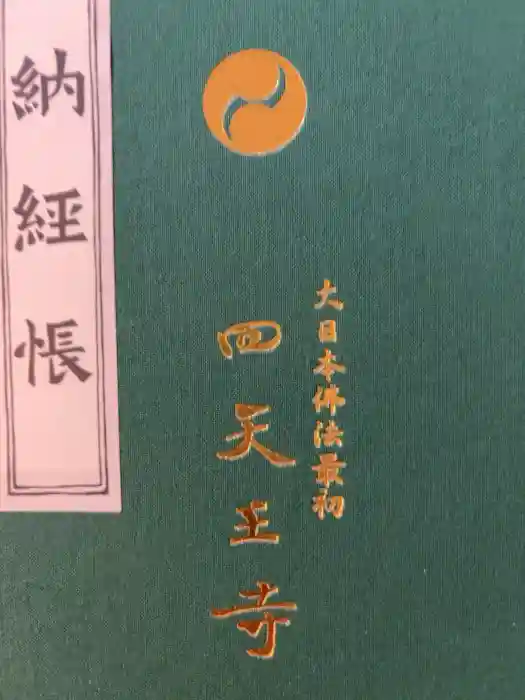 納経帳
大日本佛法最初
四天王寺